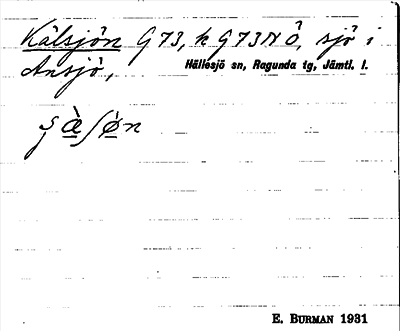 Kälsjön G 73, k G 73 N Ö, sjö i
Ansjö, Hällesjö sn, Ragunda tg, Jämtl. l.
E. BURMAN 1931